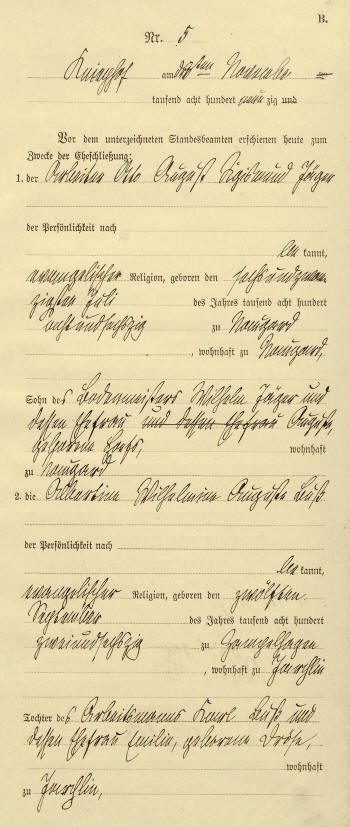 B.
Nr. 5
Kniephof am dreißigsten November
tausend acht hundert neun zig und
Vor dem unterzeichneten Standesbeamten erschienen heute zum
Zwecke der Eheschließung:
1. der Arbeiter Otto August Sigismund Jäger
der Persönlichkeit nach
be kannt,
evangelischer Religion, geboren den sechsundzwan-
zigsten Juli des Jahres tausend acht hundert
achtundsechszig zu Naugard
, wohnhaft zu Naugard,
Sohn des Bodenmeisters Wilhelm Jäger und
dessen Ehefrau und dessen Ehefrau Auguste,
geborene
wohnhaft
zu Naugard
2. die Albertine Wilhelmine Auguste Buß
der Persönlichkeit nach
be kannt,
evangelischer Religion, geboren den zwölften
September des Jahres tausend acht hundert
zweiundsechszig zu
, wohnhaft zu Jarchlin
Tochter des Arbeitsmanns Karl Buß und
dessen Ehefrau Emilie, geborene Dröse,
wohnhaft
zu Jarchlin,